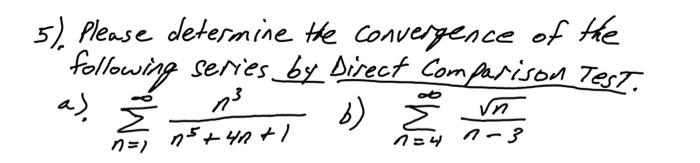 5). Please determine the convergence of the
following series by Direct Comparison Test.
a). ∞∑n=1 n³/(n⁵ + 4n + 1) b) ∞∑n=4 √n/(n - 3)